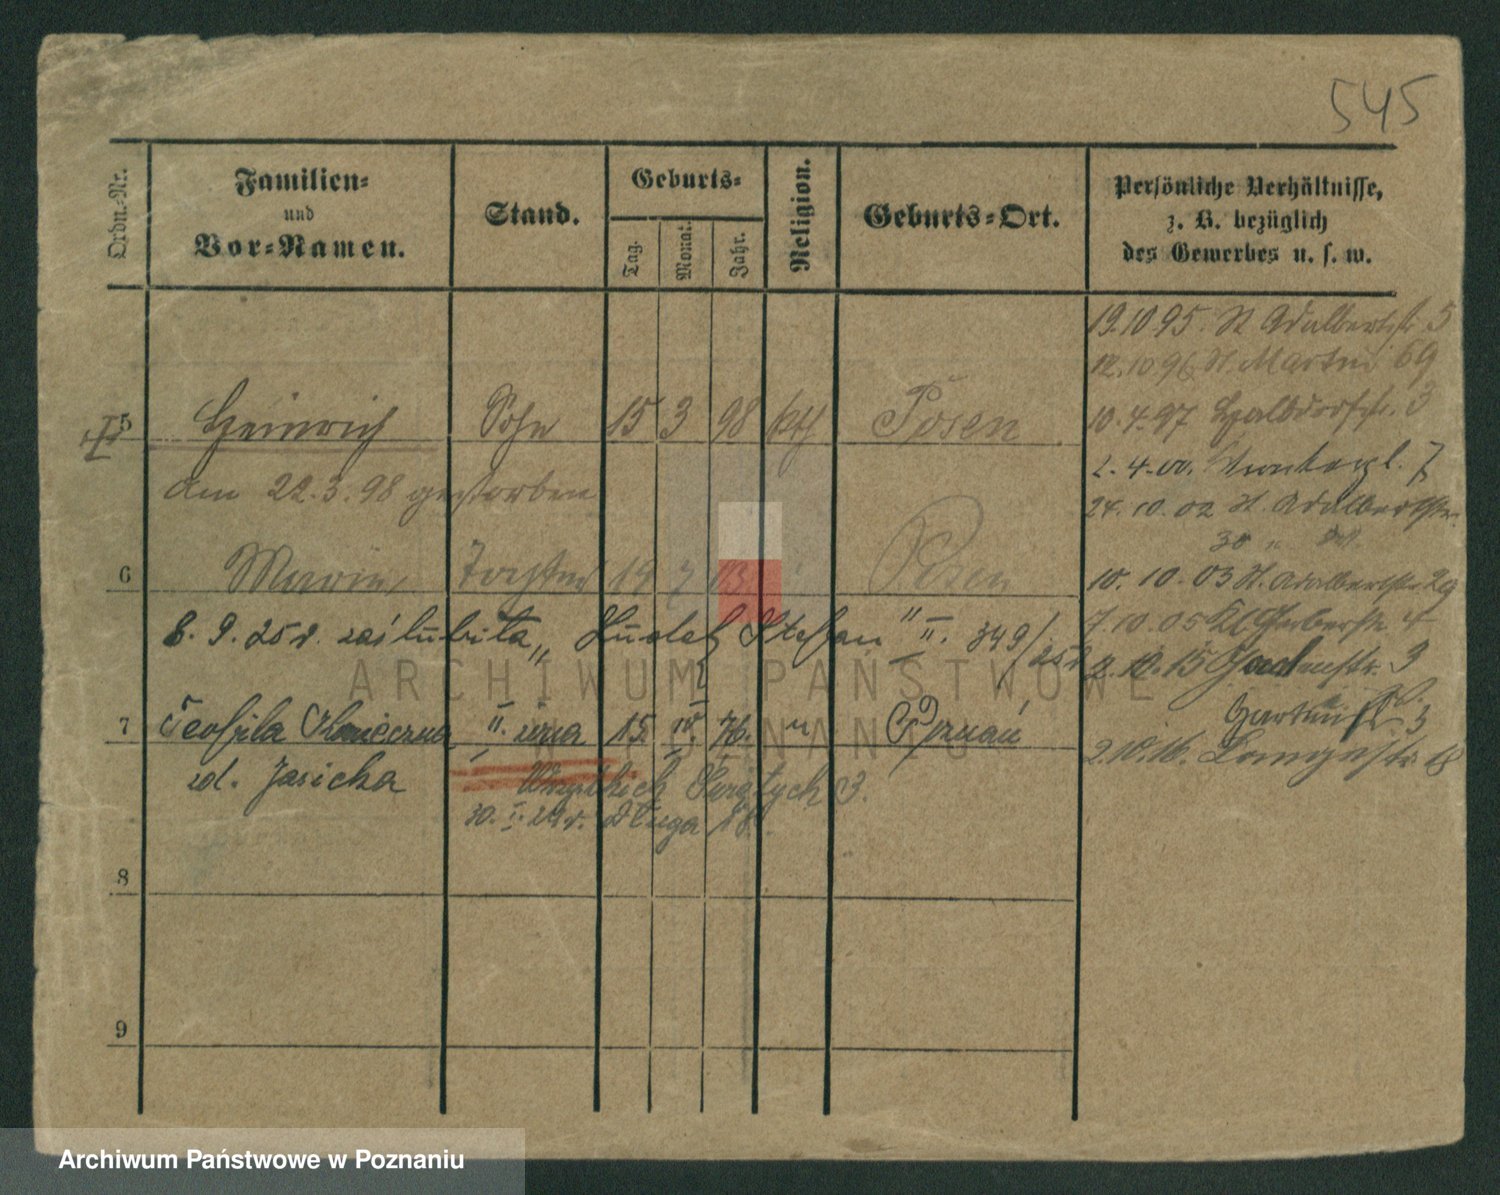 545
Ordn.-Nr.
Familien-
und
Vor-Namen.
Stand.
Geburts-
Tag.
Monat.
Jahr.
Religion.
Geburts-Ort.
Persönliche Verhältnisse,
z. B. bezüglich
des Gewerbes u. s. w.
19.10 95. St Adalbertstr 5
12.10 96 St. Martin 69
5 Heinrich Sohn 15 3 98 kth Posen
10.4.97 Halbdorfstr. 3
am 22.3.98 gestorben
2.4.00. 7
24.10.02 St. Adalbertstr.
30 "
6 Tochter 14 7 Posen
10.10.03 St. Adalbertstr. 29
8. 9. 25 r. zaślubiła " Stefan " II. 349/25
7.10.05 Kl Gerberstr 4
10.15 Gartenstr. 9
Gartenstr. 3
7 Teofila II. żona 15. 76. " Poznań
2.10.16. Langestr. 18
zd. Jasicka
Wszystkich Świętych 3.
30. Długa 18.
8
9
ARCHIWUM PAŃSTWOWE
W POZNANIU
Archiwum Państwowe w Poznaniu